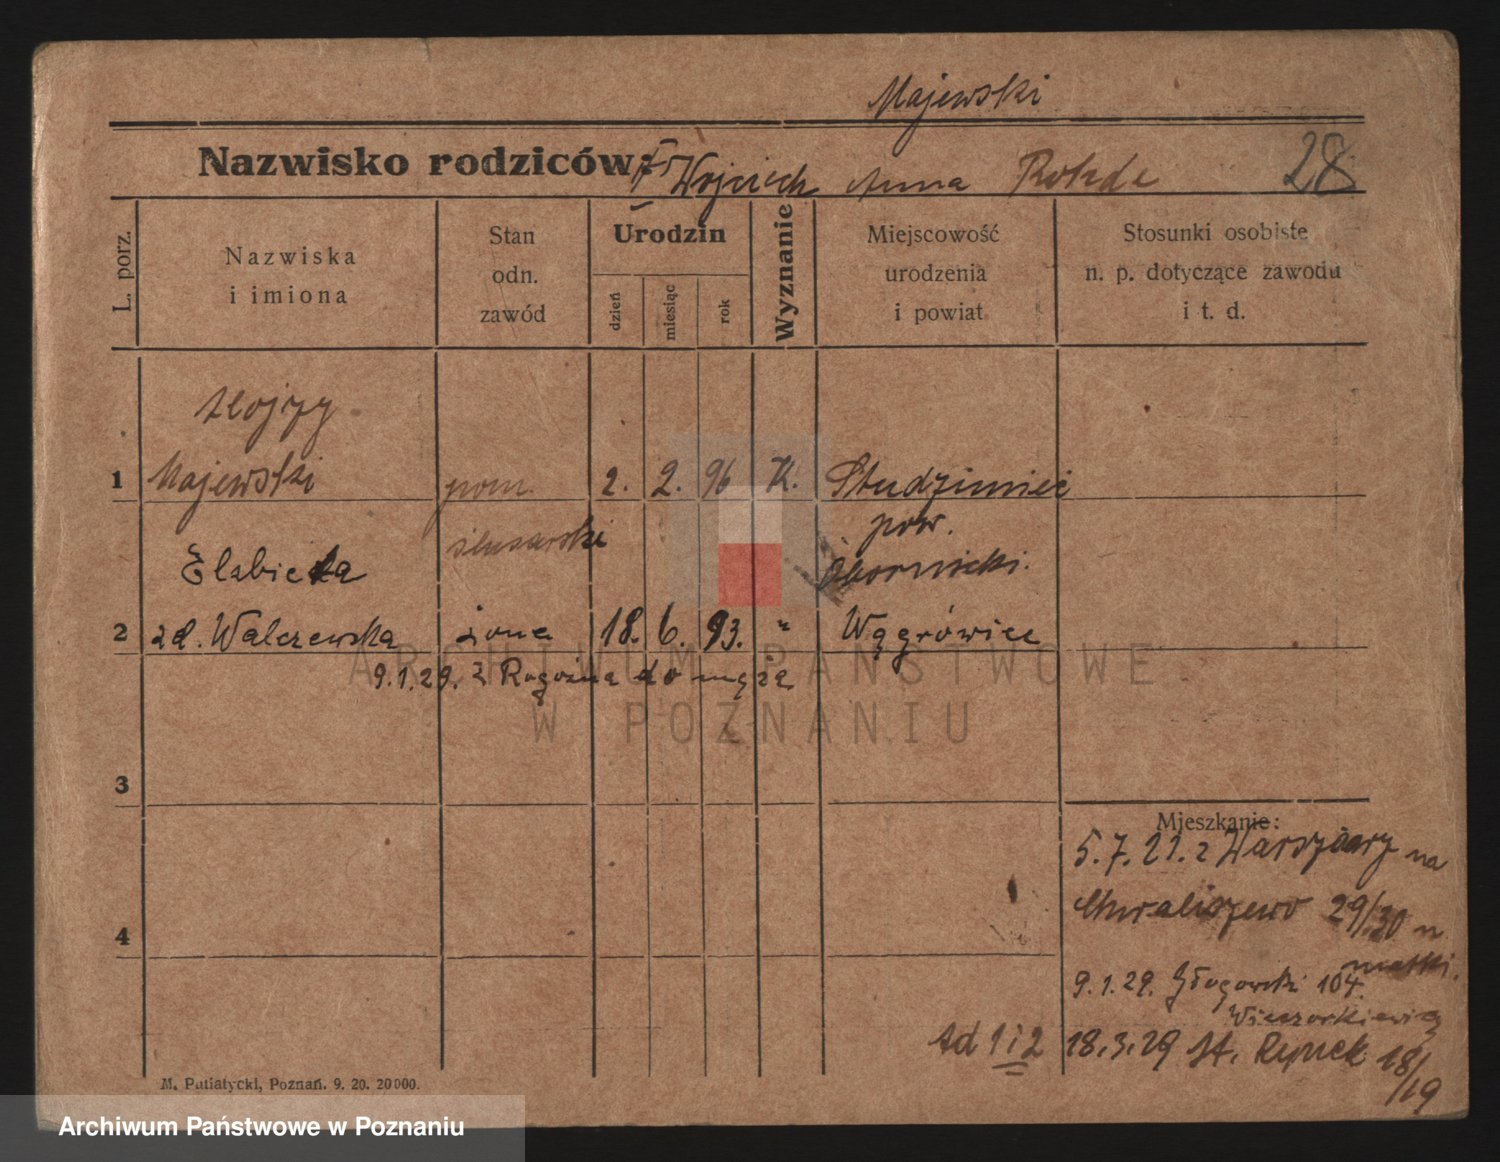 Majewski
Nazwisko rodziców: Wojciech Anna Rohde 28
L. porz.
Nazwiska
i imiona
Stan
odn.
zawód
Urodzin
dzień
miesiąc
rok
Wyznanie
Miejscowość
urodzenia
i powiat
Stosunki osobiste
n. p. dotyczące zawodu
i t. d.
Alojzy
1 Majewski pom. 2. 2. 96 K. Studzimiec
ślusarski pow.
Obornicki.
Elżbieta
2 zd. Walczewska żona 18. 6. 93. " Wągrówiec
9.1.29. z Rogoźna do męża
ARCHIWUM PAŃSTWOWE
W POZNANIU
3
Mjeszkanie:
5.7.21. z Warszawy na
Chwaliszewo 29/30 u
matki.
4
9.1.29. Głogowski 104.
Wieczorkiewicz
ad 1 i 2 18.3.29 St. Rynek 18/19
M. Putiatycki, Poznań. 9. 20. 20000.
Archiwum Państwowe w Poznaniu